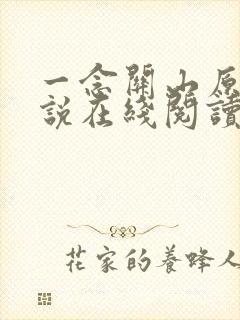 一念關山原
說在綫閱讀
花家的養蜂人